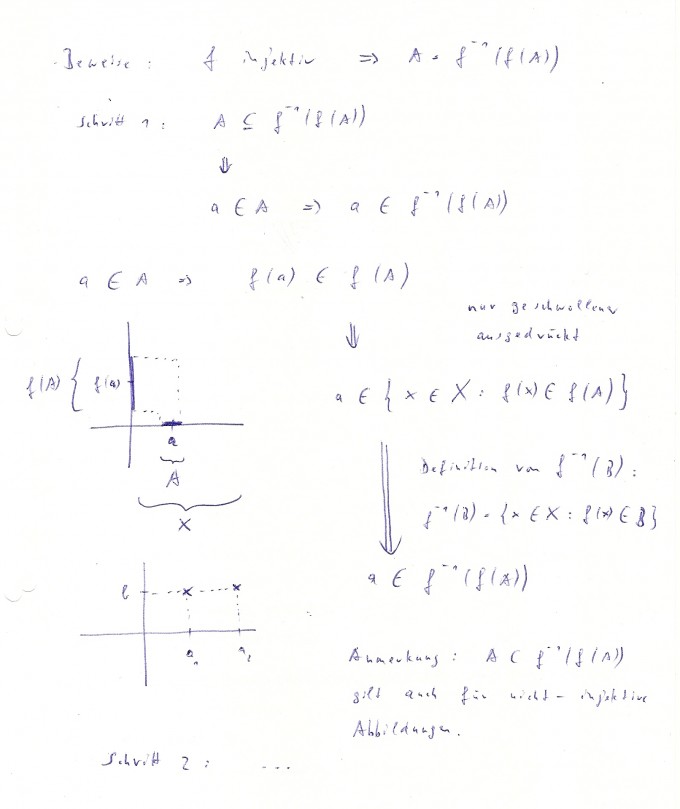 Beweise: f injektiv ⇒ A = f⁻¹(f(A))
Schritt 1: A ⊆ f⁻¹(f(A))
⇓
a ∈ A ⇒ a ∈ f⁻¹(f(A))
a ∈ A ⇒ f(a) ∈ f(A)
nur geschwollener
ausgedrückt
⇓
f(A) { f(a)
a
A
X
a ∈ {x ∈ X : f(x) ∈ f(A)}
Definition von f⁻¹(B):
f⁻¹(B) = {x ∈ X : f(x) ∈ B}
⇓
a ∈ f⁻¹(f(A))
b
a₁ a₂
Anmerkung: A ⊂ f⁻¹(f(A))
gilt auch für nicht-injektive
Abbildungen.
Schritt 2: ...